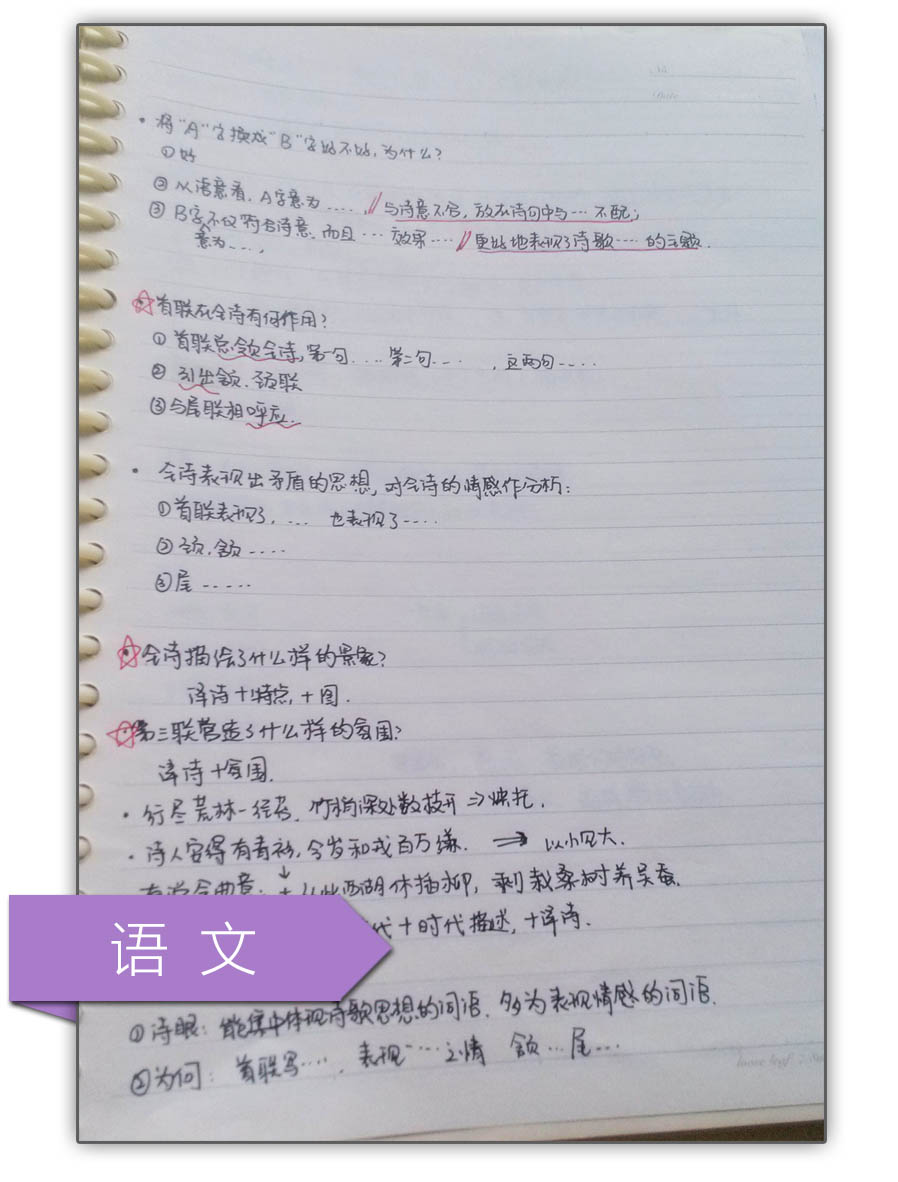 No.
Date
· 将"A"字换成"B"字好不好,为什么?
①好
②从语意看,A字意为……,//与诗意不合,放在诗句中与…不配;
③B字不仅符合诗意,而且…效果….//更好地表现了诗歌….的主题.
意为….,
☆首联在全诗有何作用?
①首联总领全诗,第一句….第二句…. ,这两句….
②引出颔.颈联
③与尾联相呼应.
· 全诗表现出矛盾的思想,对全诗的情感作分析:
①首联表现了,… 也表现了….
②颈.颔….
③尾……
☆全诗描绘了什么样的景象?
译诗+特点+图.
☆第三联营造了什么样的氛围?
译诗+氛围.
· 行尽荒林一径苔,竹梢深处数枝开⇒烘托.
· 诗人安得有青衫,今岁和戎百万缣. ⇒ 以小见大.
↓
从此西湖休插柳,剩栽桑树养吴蚕.
代+时代描述,+译诗.
语文
①诗眼:能集中体现诗歌思想的词语,多为表现情感的词语.
②为何:首联写….,表现…之情 颔…尾…
loose leaf